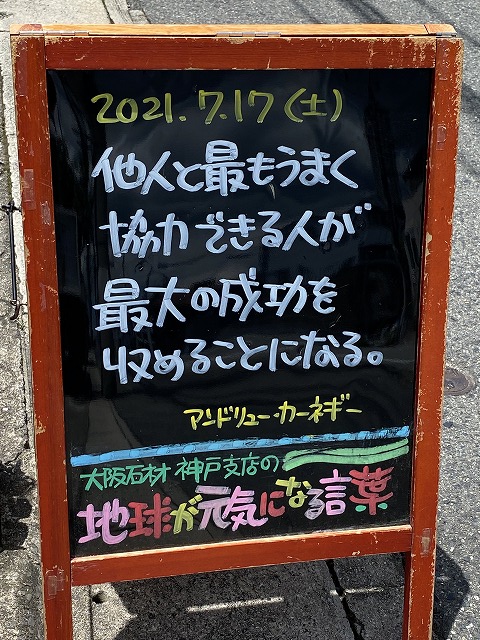 2021.7.17(土)
他人と最もうまく
協力できる人が
最大の成功を
収めることになる。
アンドリュー・カーネギー
大阪石材 神戸支店の
地球が元気になる言葉